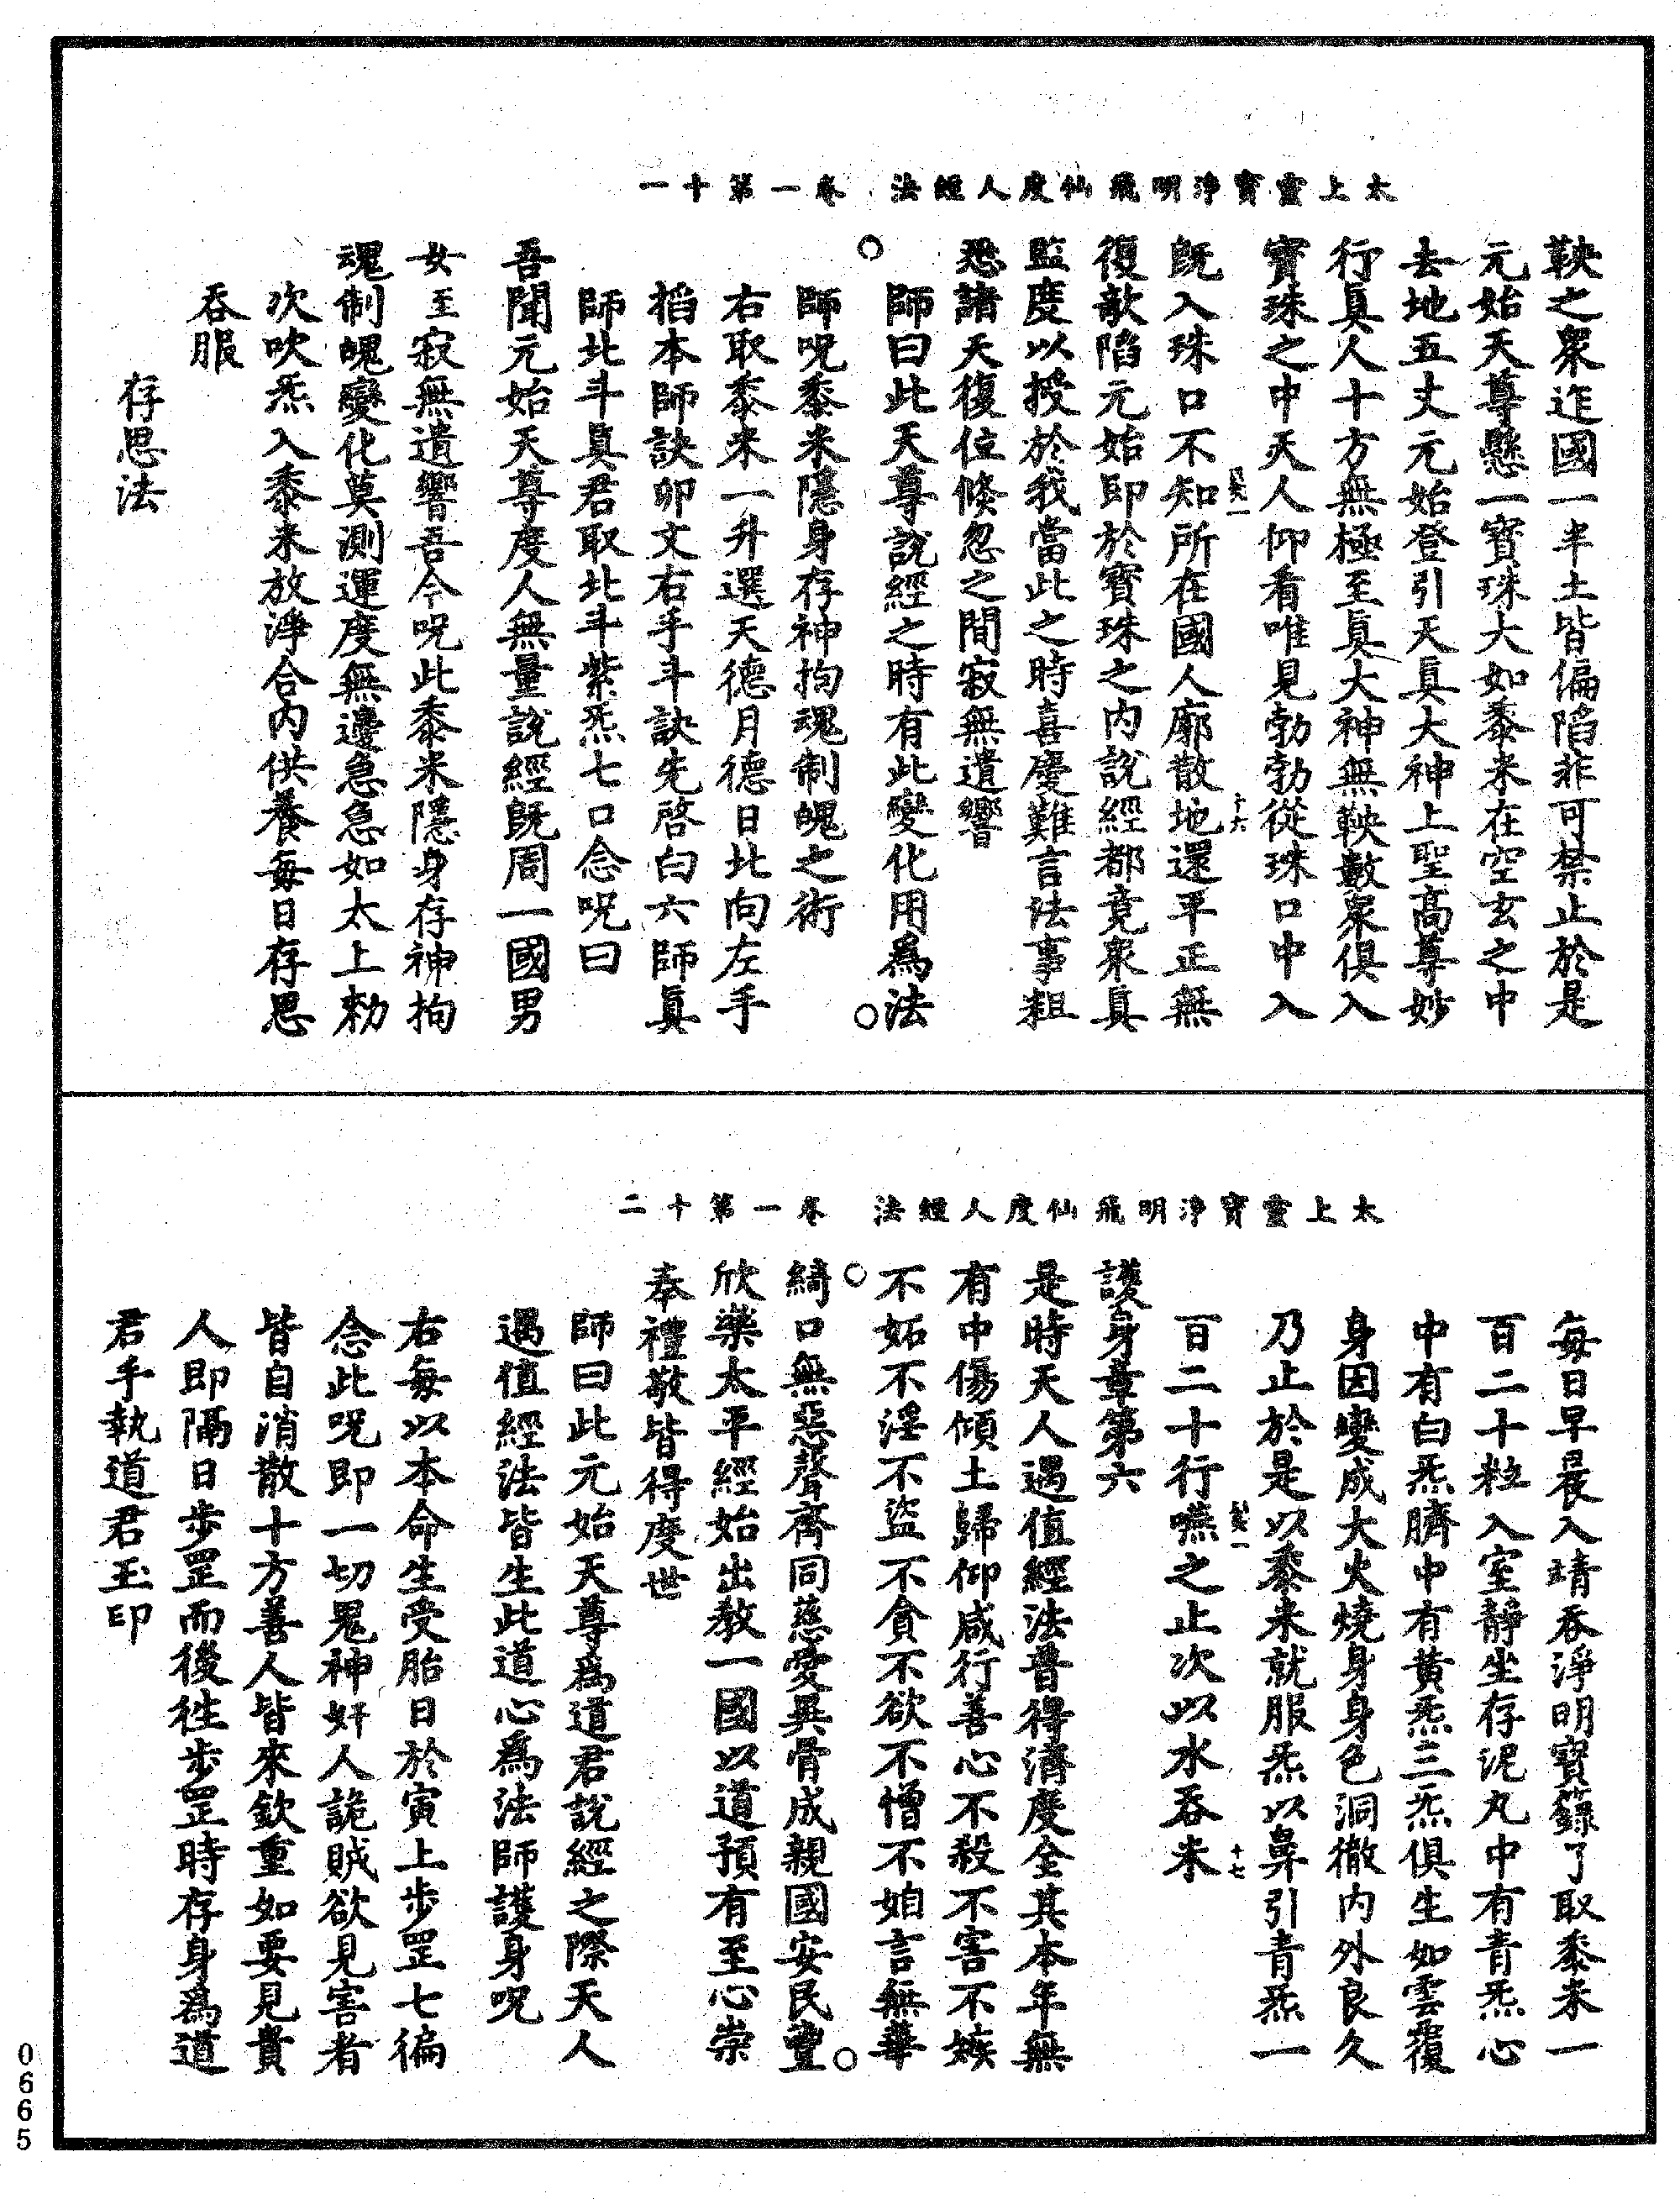 太上靈寶淨明飛仙度人經法　卷一第十一
鞅之衆迮國一半土皆偏陷非可禁止於是
元始天尊懸一寶珠大如黍米在空玄之中
去地五丈元始登引天真大神上聖高尊妙
行真人十方無極至真大神無鞅數衆俱入
寶珠之中天人仰看唯見勃勃從珠口中入
十六
既入珠口不知所在國人廓散地還平正無
復欹陷元始即於寶珠之內說經都竟衆真
監度以授於我當此之時喜慶難言法事粗
悉諸天復位倏忽之間寂無遺響
師曰此天尊說經之時有此變化用爲法
師呪黍米隱身存神拘魂制魄之術
右取黍米一升選天德月德日北向左手
搯本師訣卯文右手斗訣先啓白六師真
師北斗真君取北斗紫炁七口念呪曰
吾聞元始天尊度人無量說經既周一國男
女至寂無遺響吾今呪此黍米隱身存神拘
魂制魄變化莫測運度無邊急急如太上勑
次吹炁入黍米放淨合內供養每日存思
吞服
存思法
太上靈寶淨明飛仙度人經法　卷一第十二
每日早晨入靖吞淨明寶籙了取黍米一
百二十粒入室靜坐存泥丸中有青炁心
中有白炁臍中有黃炁三炁俱生如雲覆
身因變成大火燒身身色洞徹內外良久
乃止於是以黍米就服炁以鼻引青炁一
十七
百二十行嚥之止次以水吞米
護身章第六
是時天人遇值經法普得濟度全其本年無
有中傷傾土歸仰咸行善心不殺不害不嫉
不妬不淫不盜不貪不欲不憎不㛐言無華
綺口無惡聲齊同慈愛異骨成親國安民豐
欣樂太平經始出教一國以道預有至心崇
奉禮敬皆得度世
師曰此元始天尊爲道君說經之際天人
遇值經法皆生此道心爲法師護身呪
右每以本命生受胎日於寅上步罡七徧
念此呪即一切鬼神奸人詭賊欲見害者
皆自消散十方善人皆來欽重如要見貴
人即隔日步罡而後徃步罡時存身爲道
君手執道君玉印
0665